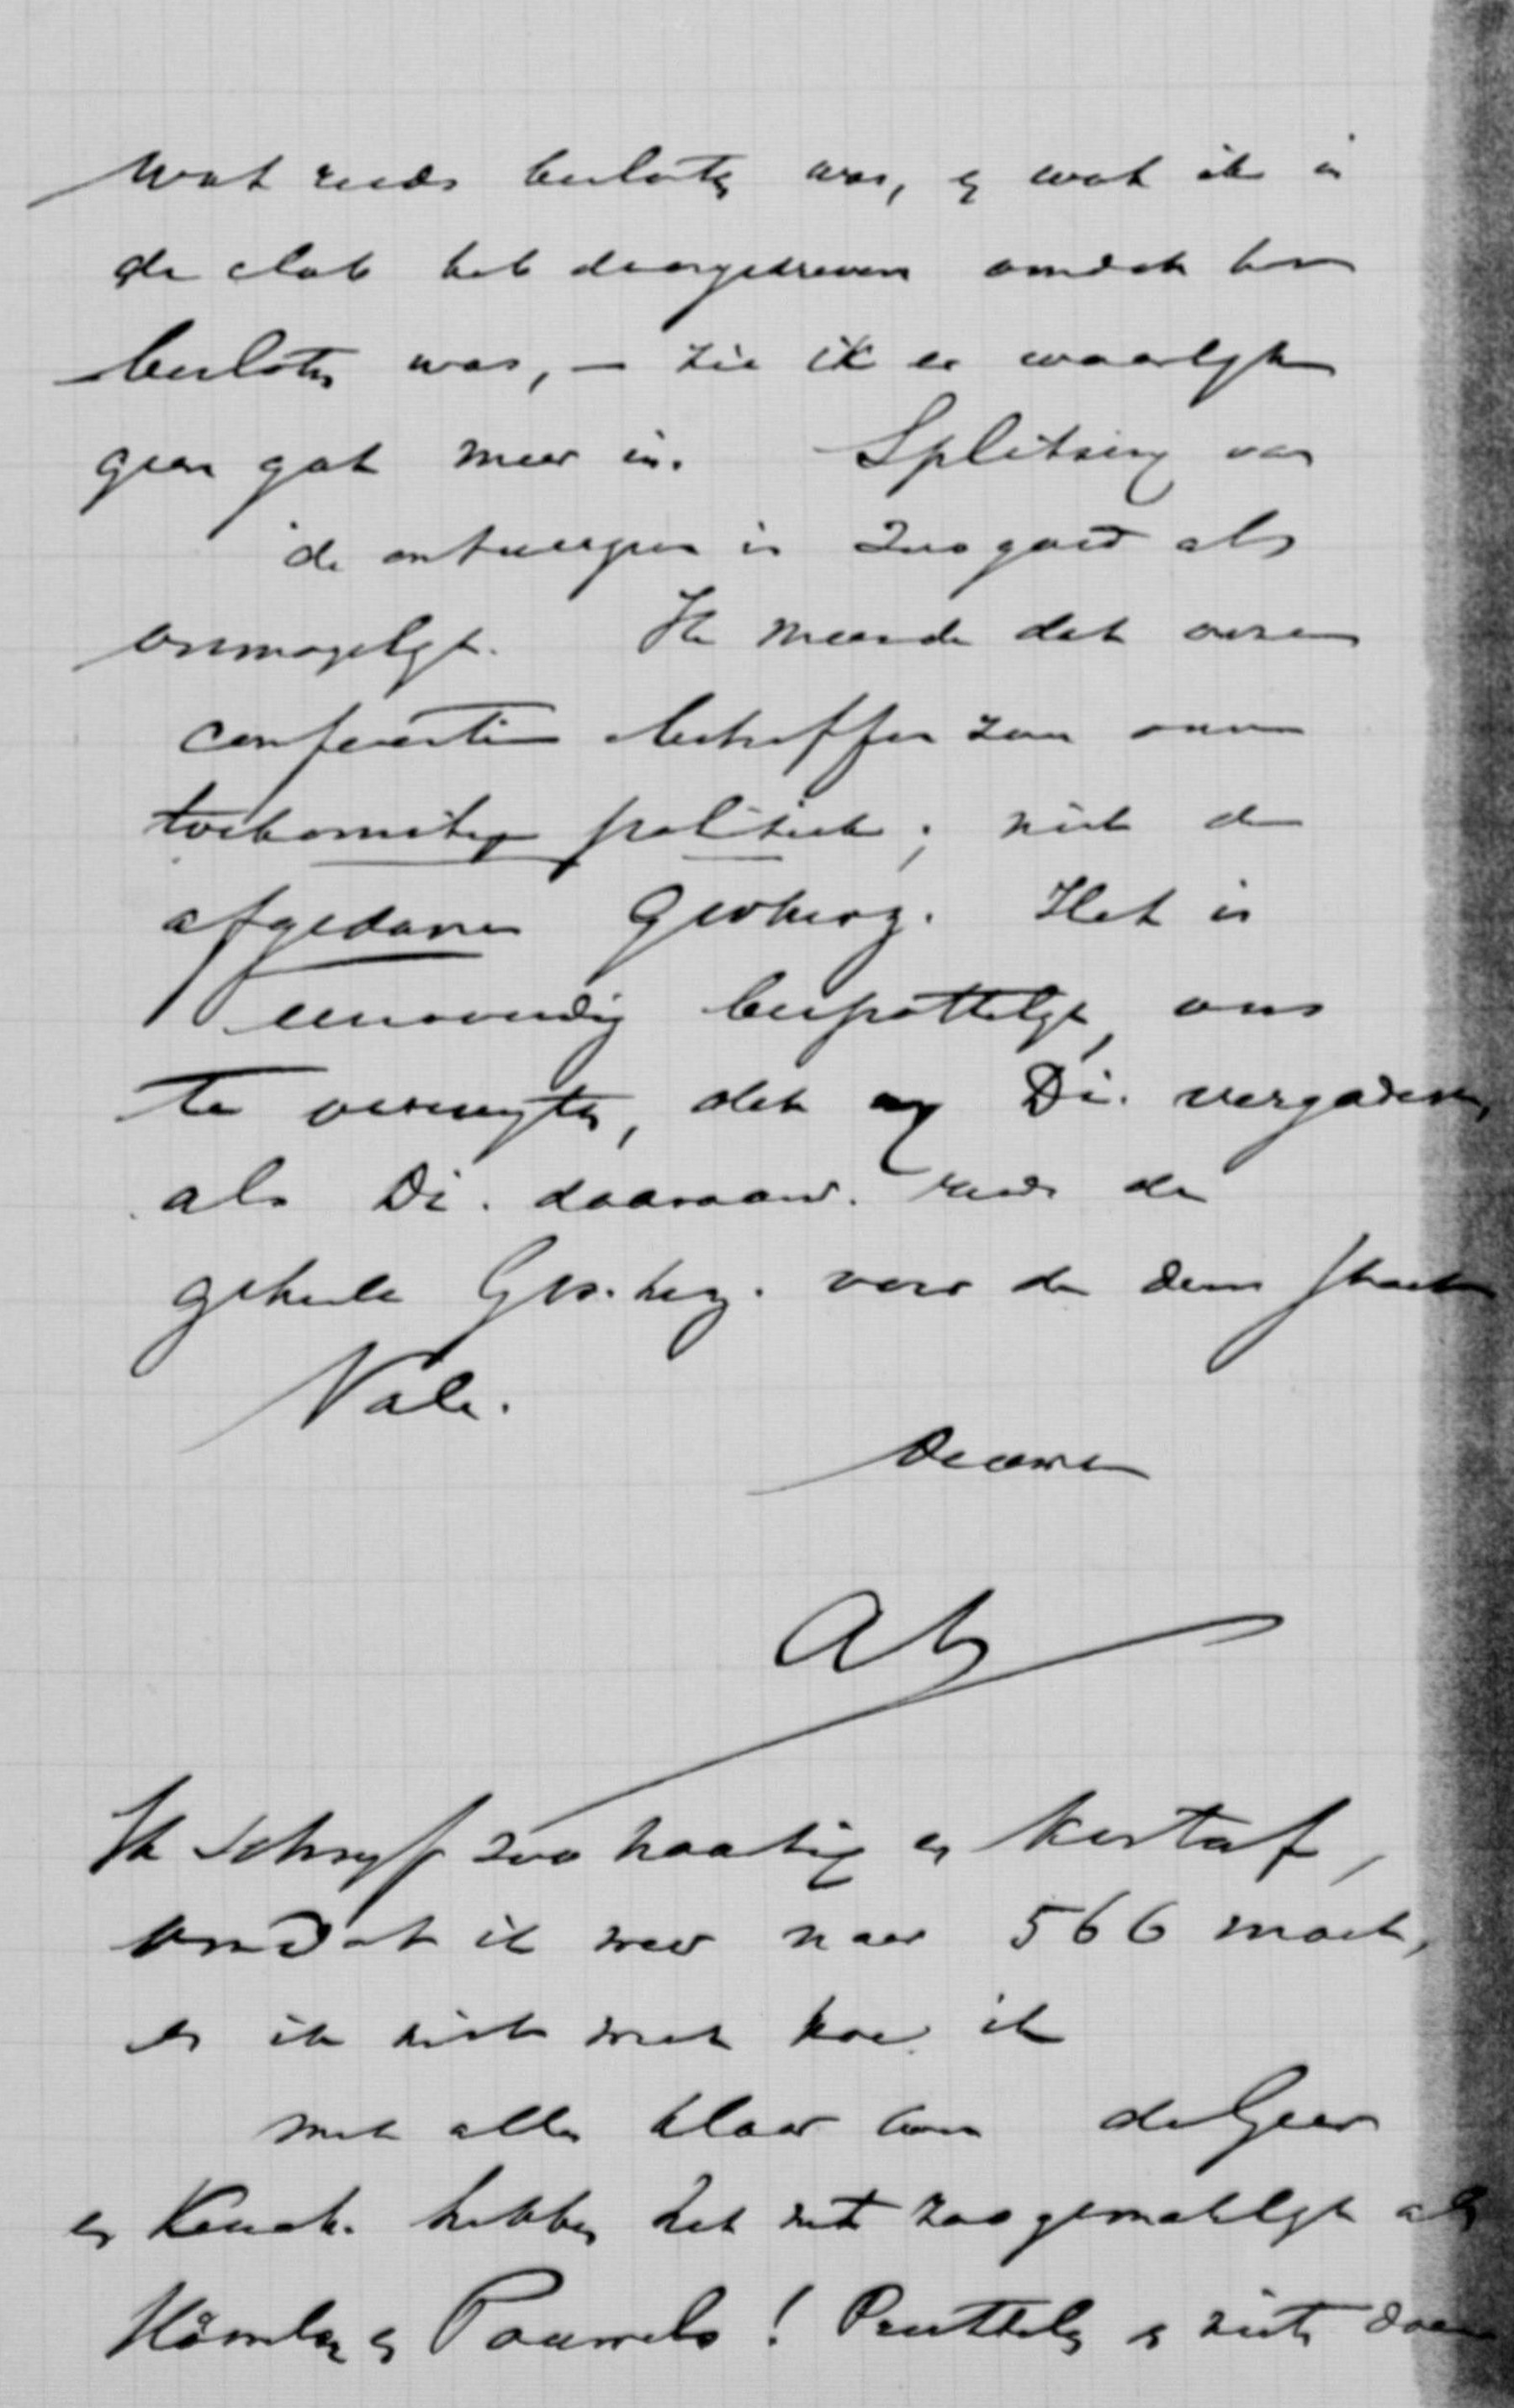 wat reeds besloten was, en wat ik in
de club heb doorgedreven omdat het
besloten was, – zie ik er waarlijk
geen gat meer in. Splitsing van
de ontwerpen is zoo goed als
onmogelijk. Ik meende dat onze
conferentie betreffen zou onze
toekomstige politiek; niet de
afgedane Grwherz. Het is
eenvoudig bespottelijk, ons
te vereenigen, dat wij Di. vergaderen,
als Di. daaraanv. reeds de
geheele Grw. herz. voor de deur staat
Vale.
A
Ik schrijf zoo haastig en kortaf,
omdat ik weer naar 566 moet,
en ik niet weet hoe ik
met alles klaar kom de Geer
en Keuch. hebben het niet zoo gemakkelijk als
en Pauwels! Pruttelen en niet doen